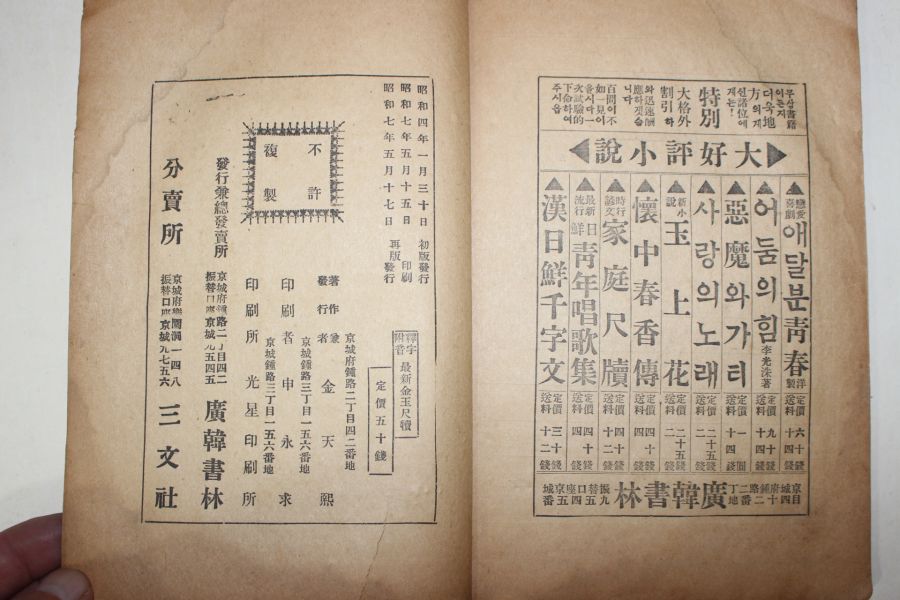 무상書籍
이든지
다욱地
方의게
신諸位에
게는!
特別
大格外
割引하
와迅速酬
應하겟슴
니다
百聞이不
如一見이
올시다一
次試驗的
下命하여
주시옵
大好評小說
▲戀愛喜劇 애달분靑春 洋製 定價 六十錢 送料 十四錢
▲어둠의힘 李光洙著 定價 九十錢 送料 十四錢
▲惡魔와가티 定價 一圓 送料 十四錢
▲사랑의노래 定價 二十五錢 送料 二錢
▲新小說 玉上花 定價 二十五錢 送料 二錢
▲懷中春香傳 定價 四十錢 送料 四錢
▲時行諺文 家庭尺牘 定價 四十錢 送料 十二錢
▲最新流行 日鮮靑年唱歌集 定價 四十錢 送料 四錢
▲漢日鮮千字文 定價 三十錢 送料 十二錢
京城府鍾路二丁目四十二番地 廣韓書林 振替口座京城九五四五番
昭和四年一月三十日 初版發行
昭和七年五月十五日 印刷
昭和七年五月十七日 再版發行
不許
複製
釋字附音 最新金玉尺牘
定價五十錢
京城府鍾路二丁目四二番地
著作兼發行者 金天熙
京城鍾路三丁目一五六番地
印刷者 申永求
京城鍾路三丁目一五六番地
印刷所 光星印刷所
發行兼總發賣所 京城府鍾路二丁目四二 振替口座京城九五四五 廣韓書林
分賣所 京城府樂園洞一四八 振替口座京城九七五六 三文社